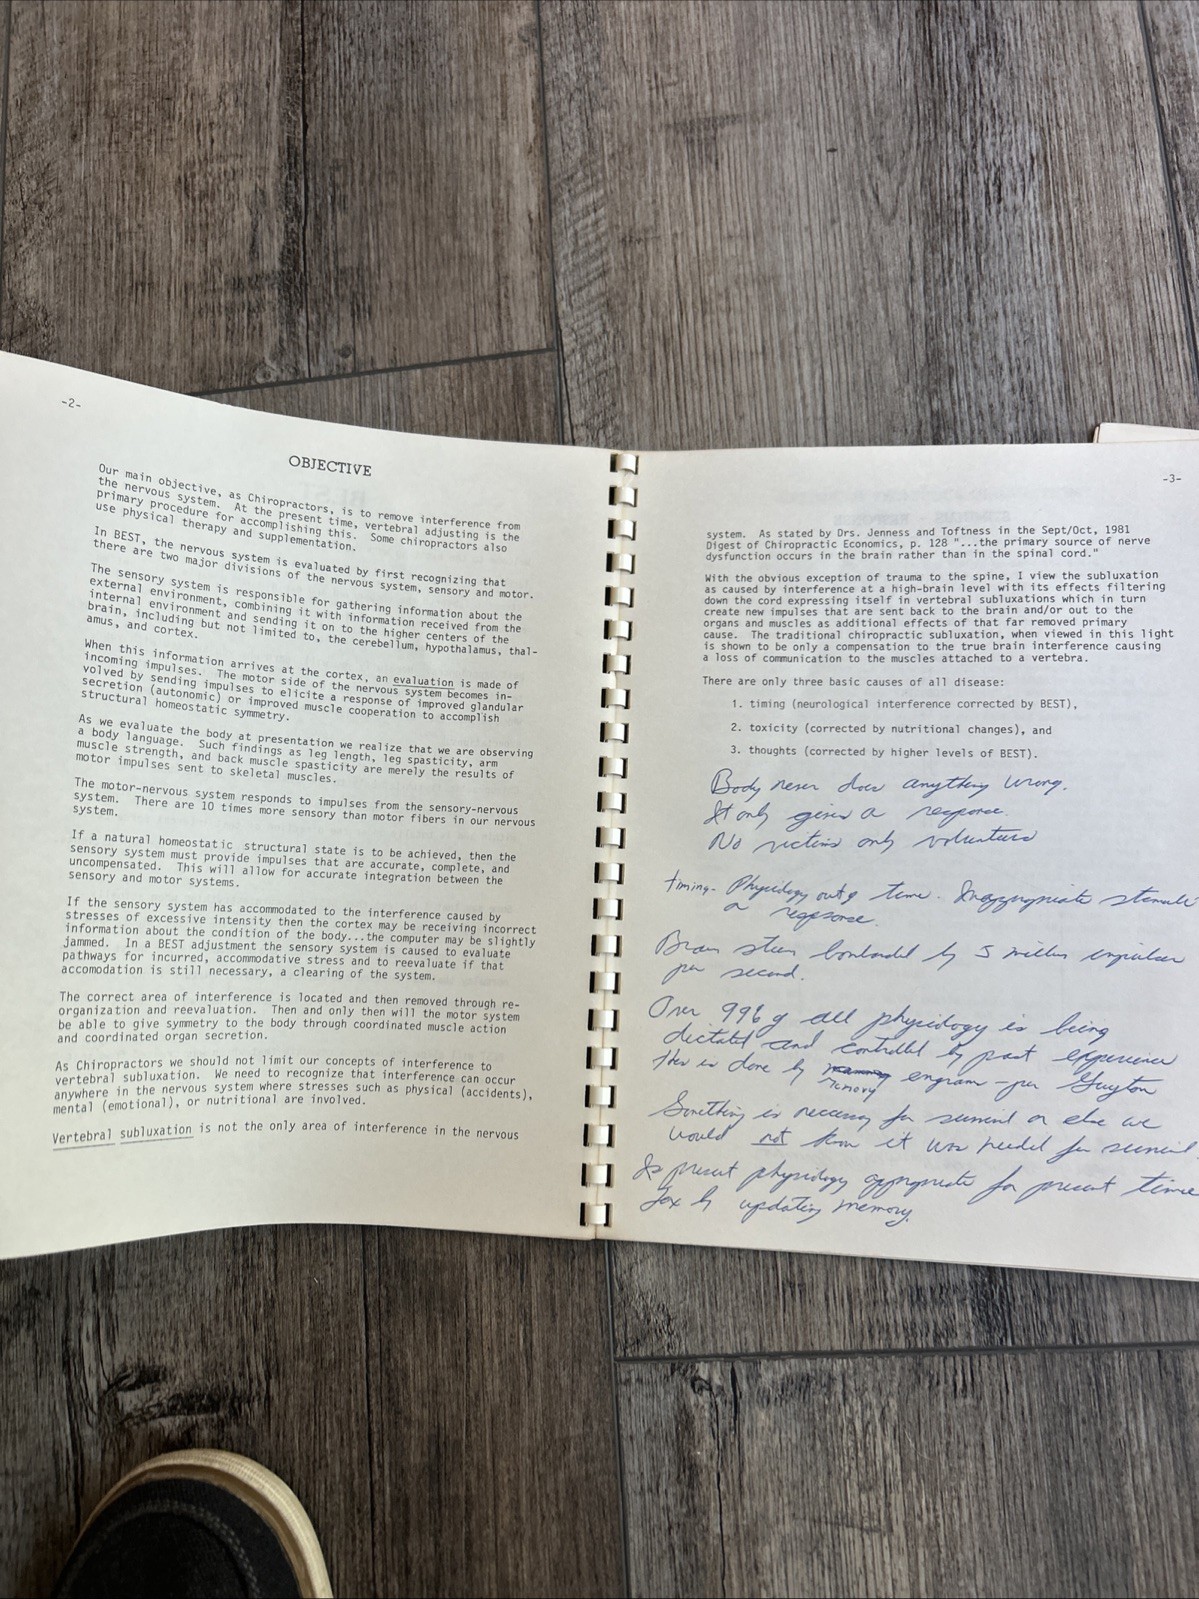 -2-
OBJECTIVE
Our main objective, as Chiropractors, is to remove interference from
the nervous system. At the present time, vertebral adjusting is the
primary procedure for accomplishing this. Some chiropractors also
use physical therapy and supplementation.
In BEST, the nervous system is evaluated by first recognizing that
there are two major divisions of the nervous system, sensory and motor.
The sensory system is responsible for gathering information about the
external environment, combining it with information received from the
internal environment and sending it on to the higher centers of the
brain, including but not limited to, the cerebellum, hypothalamus, thal-
amus, and cortex.
When this information arrives at the cortex, an evaluation is made of
incoming impulses. The motor side of the nervous system becomes in-
volved by sending impulses to elicite a response of improved glandular
secretion (autonomic) or improved muscle cooperation to accomplish
structural homeostatic symmetry.
As we evaluate the body at presentation we realize that we are observing
a body language. Such findings as leg length, leg spasticity, arm
muscle strength, and back muscle spasticity are merely the results of
motor impulses sent to skeletal muscles.
The motor-nervous system responds to impulses from the sensory-nervous
system. There are 10 times more sensory than motor fibers in our nervous
system.
If a natural homeostatic structural state is to be achieved, then the
sensory system must provide impulses that are accurate, complete, and
uncompensated. This will allow for accurate integration between the
sensory and motor systems.
If the sensory system has accommodated to the interference caused by
stresses of excessive intensity then the cortex may be receiving incorrect
information about the condition of the body...the computer may be slightly
jammed. In a BEST adjustment the sensory system is caused to evaluate
pathways for incurred, accommodative stress and to reevaluate if that
accomodation is still necessary, a clearing of the system.
The correct area of interference is located and then removed through re-
organization and reevaluation. Then and only then will the motor system
be able to give symmetry to the body through coordinated muscle action
and coordinated organ secretion.
As Chiropractors we should not limit our concepts of interference to
vertebral subluxation. We need to recognize that interference can occur
anywhere in the nervous system where stresses such as physical (accidents),
mental (emotional), or nutritional are involved.
Vertebral subluxation is not the only area of interference in the nervous
-3-
system. As stated by Drs. Jenness and Toftness in the Sept/Oct, 1981
Digest of Chiropractic Economics, p. 128 "...the primary source of nerve
dysfunction occurs in the brain rather than in the spinal cord."
With the obvious exception of trauma to the spine, I view the subluxation
as caused by interference at a high-brain level with its effects filtering
down the cord expressing itself in vertebral subluxations which in turn
create new impulses that are sent back to the brain and/or out to the
organs and muscles as additional effects of that far removed primary
cause. The traditional chiropractic subluxation, when viewed in this light
is shown to be only a compensation to the true brain interference causing
a loss of communication to the muscles attached to a vertebra.
There are only three basic causes of all disease:
1. timing (neurological interference corrected by BEST),
2. toxicity (corrected by nutritional changes), and
3. thoughts (corrected by higher levels of BEST).
Body never does anything wrong.
It only gives a response.
No victims only volunteers
timing- Physiology out of time. Inappropriate stimuli
or response.
Brain stem bombarded by 5 million impulses
per second.
Over 99% of all physiology is being
dictated and controlled by past experience
this is done by memory engram - per Guyton
Something is necessary for survival or else we
would not know it was needed for survival.
Is present physiology appropriate for present time
by updating memory.